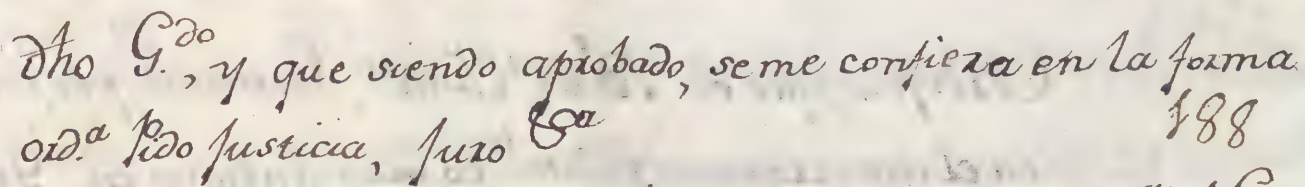 Dho G.do, y que siendo aprobado, se me confiera en la forma
ord.a Pido Justicia, Juro &a
188